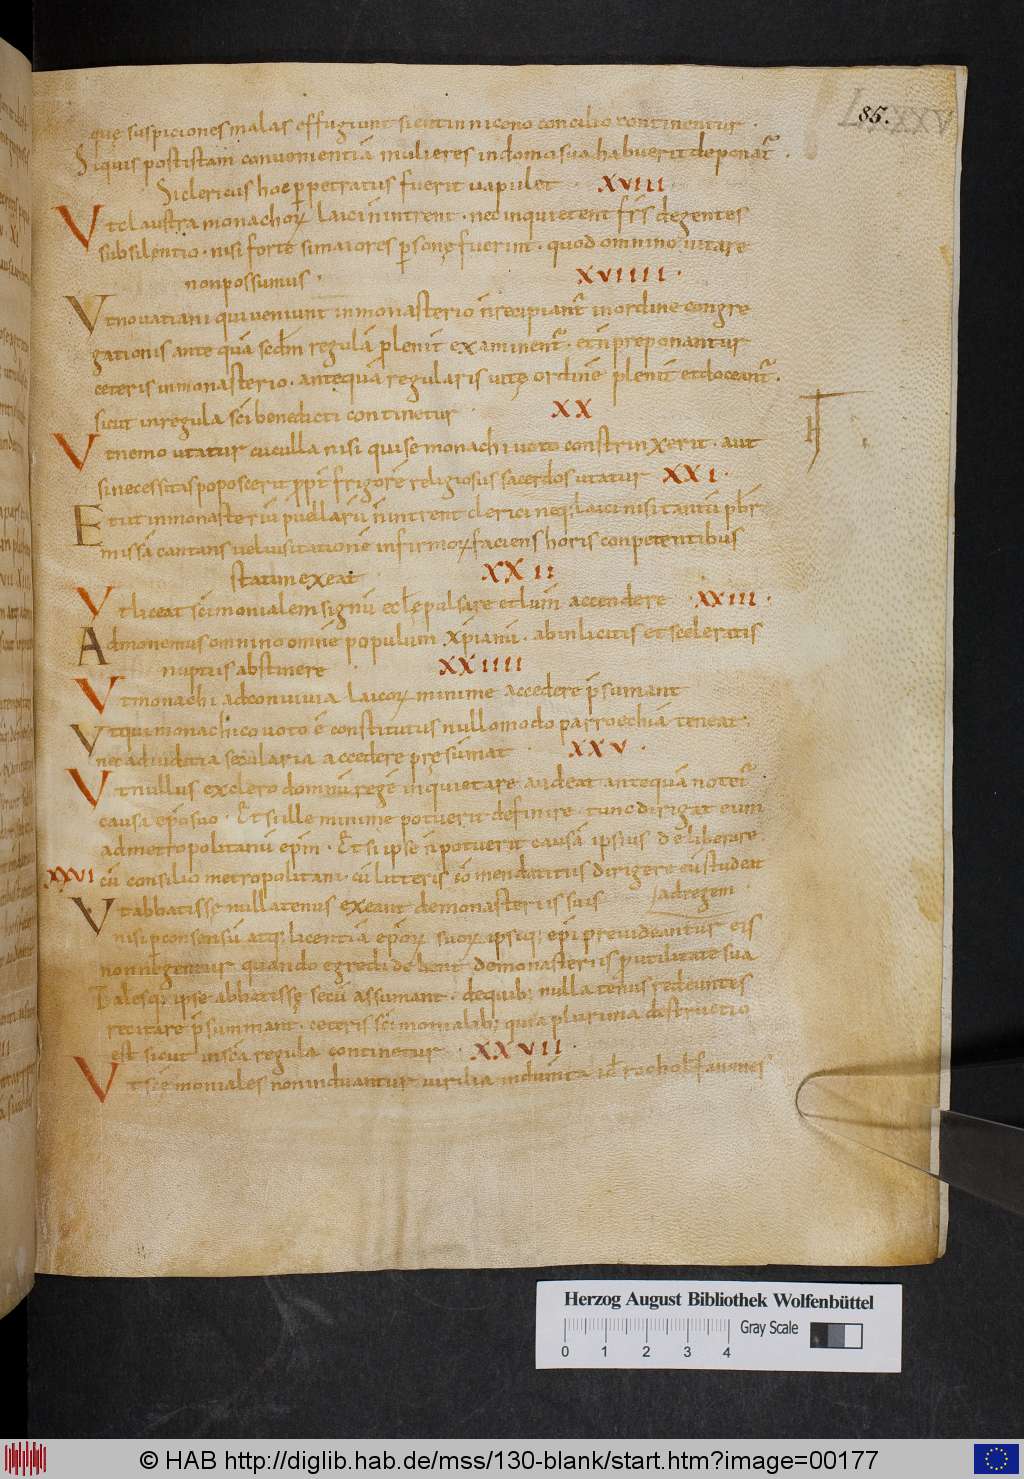 LXXXV
85.
quę suspiciones malas effugiunt sicut in niceno concilio continentur.
Siquis post istam convenientiā mulieres in domo sua habuerit deponat᷑.
Si clericus hoc ꝑpetratus fuerit vapulet. XVIII
Vt claustra monachoꝝ laici ñ intrent. nec inquietent fr̄s degentes
sub silentio. nisi forte si maiores ꝑsonę fuerint. quod omnino vitare
non possumus. XVIIII.
Vt novatiani qui veniunt in monasterio ñ recipiant᷑ in ordine congre
gationis ante quā scd̄m regulā plenit examinent᷑. et ñ preponantur
ceteris in monasterio. antequā regularis vitę ordinē plenit edoceant᷑.
sicut in regula sc̄i benedicti continetur XX
Vt nemo utatur cuculla nisi qui se monachi voto constrinxerit. aut
si necessitas poposcerit ꝓpt frigorē religiosus sacerdos utatur XXI.
Et ut in monasteriū puellarū ñ intrent clerici neq; laici nisi tantū pb̄r
missā cantans vel visitationē infirmoꝝ faciens horis conpetentibus
statim exeat XXII
Vt liceat sc̄imonialem signū eccl̄ę pulsare et lum̄ accendere. XXIII.
Admonemus omnino omnē populum xp̄ianū. ab inlicitis et sceleratis
nuptiis abstinere XXIIII
Vt monachi ad convivia laicoꝝ minime accedere p̄sumant
Vt qui monachico voto ē constitutus nullo modo parroechiā teneat.
nec ad iuditia secularia accedere pręsumat XXV.
Vt nullus ex clero domnū regē inquietare audeat antequā notet᷑
causā ep̄o suo. Et si ille minime potuerit definire. tunc dirigat eum
ad metropolitanū ep̄m. Et si ipse ñ potuerit causā ipsius deliberare.
XXVI cū consilio metropolitani. cū litteris cōmendatitiis dirigere eū studeat
Vt abbatissę nullatenus exeant de monasteriis suis ad regem.
nisi ꝑ consensū atq; licentiā ep̄oꝝ suoꝝ ipsiq; ep̄i previdebantur eis
quando egredi debent de monasteriis ꝓ utilitate sua
Talesq; ipse abbatissę secū assumant. de quib; nullatenus redeuntes
recitare p̄summant. ceteris sc̄imonialib; quia plurima destructio
est sicut in sc̄a regula continetur. XXVII.
Vt sc̄ę moniales non induantur virilia induiñta id rochol fanones
Herzog August Bibliothek Wolfenbüttel
Gray Scale
0 1 2 3 4
© HAB http://diglib.hab.de/mss/130-blank/start.htm?image=00177